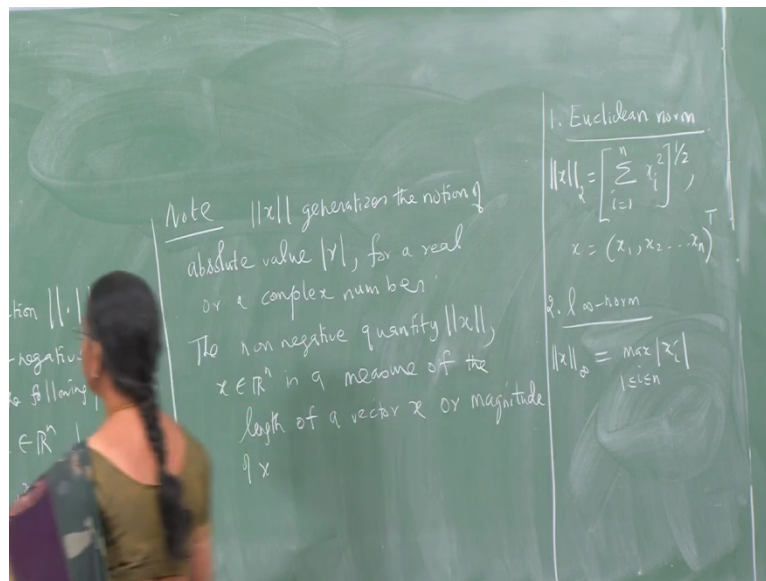 tion ||·||
-negative
e following
∈ ℝⁿ
Note ||x|| generalizes the notion of
absolute value |r|, for a real
or a complex number.
The non negative quantity ||x||,
x ∈ ℝⁿ is a measure of the
length of a vector x or magnitude
of x
1. Euclidean norm
||x||₂ = [∑ᵢ₌₁ⁿ xᵢ²]^1/2,
x = (x₁, x₂ ... xₙ)ᵀ
2. l ∞-norm
||x||∞ = max |xᵢ|
1≤i≤n